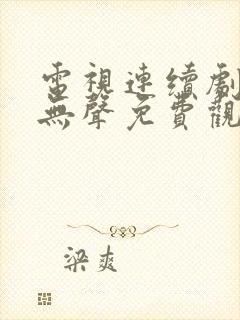 電視連續劇
無聲免費觀
梁爽